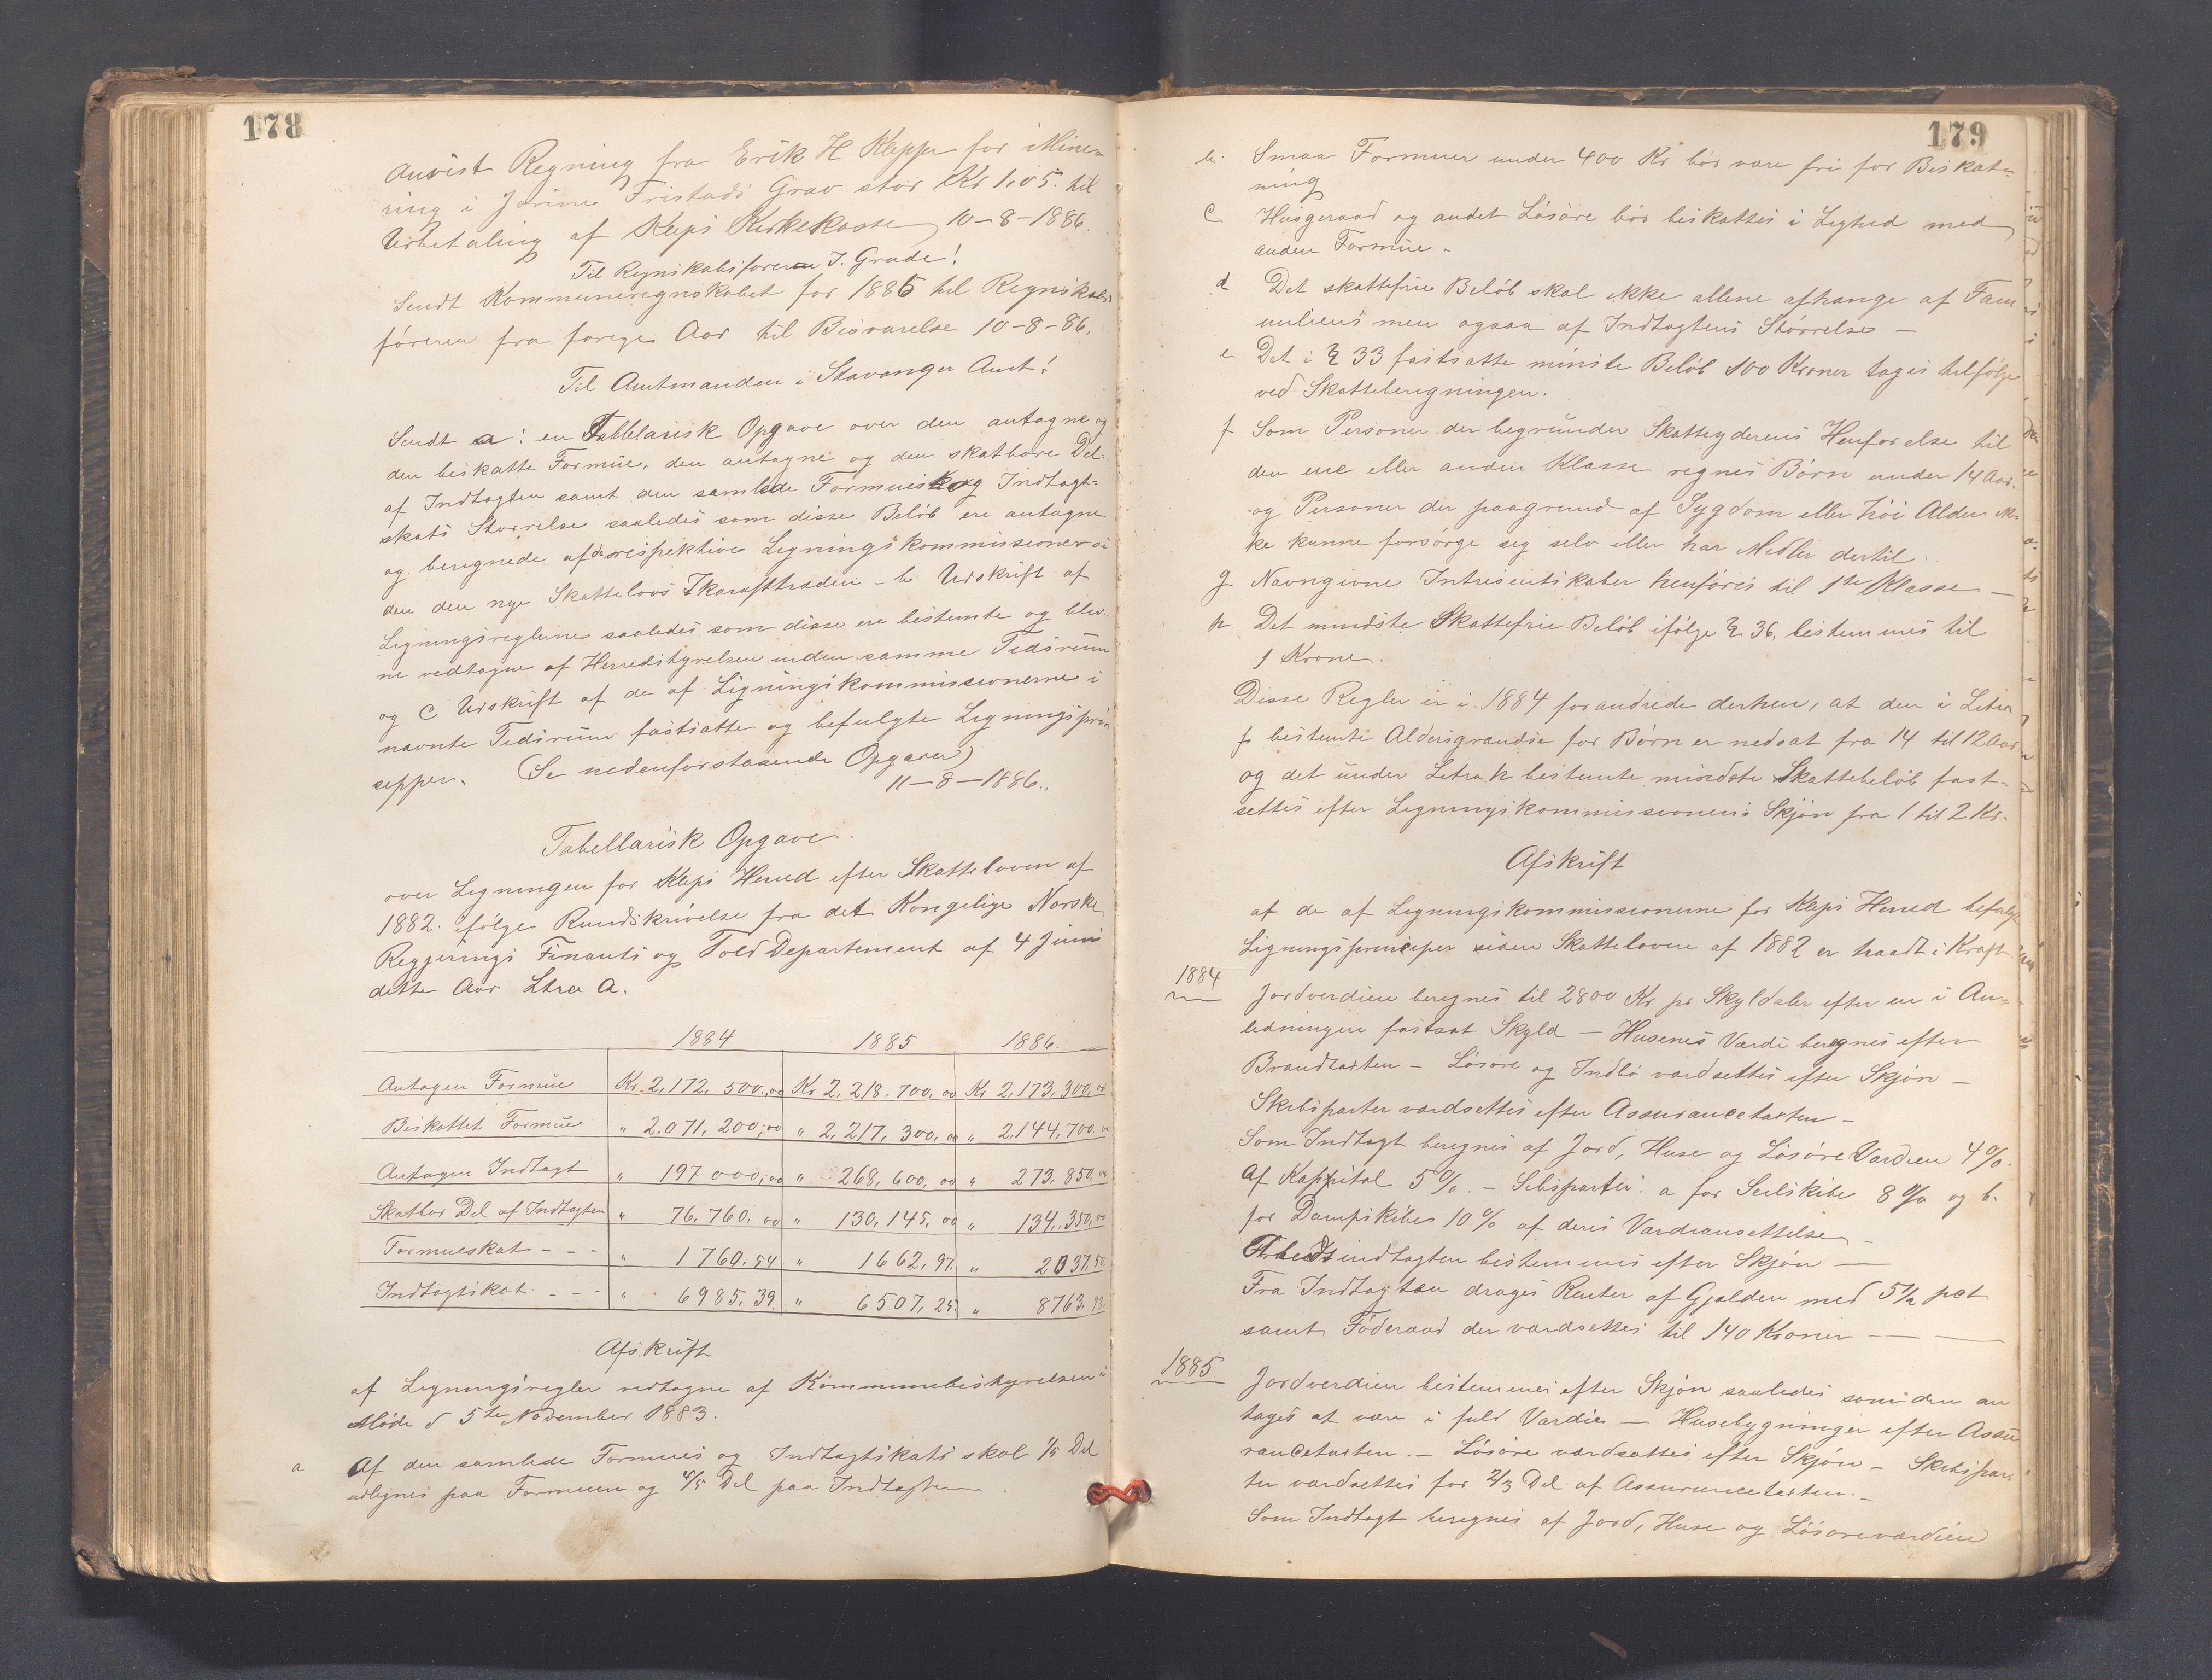 178
Anvist Regning fra Erik H Kleppe for Mine-
ring i Jorine Fristads Grav stor Kr 1,05. til
Udbetaling af Kleps Kirkekasse 10-8-1886.
Til Regnskabsføreren J. Grude!
Sendt Kommuneregnskabet for 1885 til Regnskabs-
føreren fra forrige Aar til Besvarelse 10-8-86.
Til Amtmanden i Stavanger Amt!
Sendt a: en Tabellarisk Opgave over den antagne og
den beskatte Formue, den antagne og den skatbare Del
af Indtægten samt den samlede Formueskat og Indtægt-
skats Størrelse saaledes som disse Beløb ere antagne
og beregnede af de respektive Ligningskommissioner si-
den den nye Skattelovs Ikrafttræden - b Udskrift af
Ligningsreglerne saaledes som disse ere bestemte og blev-
ne vedtagne af Herredstyrelsen inden samme Tidsrum
og C Udskrift af de af Ligningskommissionerne i
nævnte Tidsrum fastsatte og befulgte Ligningsprin
sepper. (Se nedenforstaaende Opgaver)
11-8-1886.
Tabellarisk Opgave
over Ligningen for Kleps Herred efter Skatteloven af
1882. ifølge Rundskrivelse fra det Kongelige Norske
Regjerings Finants og Told Departement af 4 Juni
dette Aar Ltra A.
1884 1885 1886.
Antagen Formue Kr. 2,172,500,00 Kr 2,218,700,00 Kr 2,173,300,00
Beskattet Formue " 2,071,200,00 " 2,217,300,00 " 2,144,700,00
Antagen Indtægt " 197 000,00 " 268,600,00 " 273,850,00
Skatbar Del af Indtægten " 76,760,00 " 130,145,00 " 134,350,00
Formueskat - - - " 1760,54 " 1662,97 " 2037,50
Indtægtskat - - - " 6985,39 " 6507,25 " 8763,93
Afskrift
af Ligningsregler vedtagne af Kommunebestyrelsen i
Møde d 5te November 1883.
a Af den samlede Formues og Indtægtskat skal 1/5 Del
udlignes paa Formuen og 4/5 Del paa Indtægten
179
b. Smaa Formuer under 400 Kr bør være fri for Beskat-
ning
C Husgeraad og andet Løsøre bør beskattes i Lighed med
anden Formue -
d Det skattefrie Beløb skal ikke allene afhænge af Fam
miliens men ogsaa af Indtægtens Størrelse -
e Det i § 33 fastsatte minste Beløb 100 Kroner tages tilfølge
ved Skatteberegningen.
f Som Personer der begrunder Skatteyderens Henførelse til
den ene eller anden Klasse regnes Børn under 14 Aar.
og Personer der paagrund af Sygdom eller høi Alder ik-
ke kunne forsørge sig selv eller har Midler dertil.
g Navngivne Intresentskaber henføres til 1ste Klasse -
h Det mindste Skattefrie Beløb ifølge § 36, bestemmes til
1 Krone.
Disse Regler er i 1884 forandrede derhen, at den i Litra
f bestemte Aldersgrændse for Børn er nedsat fra 14 til 12 Aar
og det under Litra h bestemte mindste Skattebeløb fast-
settes efter Ligningskommissionens Skjøn fra 1 til 2 Kr.
Afskrift
af de af Ligningskommissionerne for Kleps Herred befulgte
Ligningsprinciper siden Skatteloven af 1882 er traadt i Kraft
1884
Jordverdien beregnes til 2800 Kr pr Skylddaler efter en i An-
ledningen fastsat Skyld - Husenes Værdi beregnes efter
Brandtaxten - Løsøre og Indbo værdsettes efter Skjøn -
Skibsparter værdsettes efter Assurancetaxten -
Som Indtægt beregnes af Jord, Huse og Løsøre Værdien 4%.
Af Kappital 5%. - Skibsparter: a for Seilskibe 8% og b.
for Dampskibes 10% af deres Værdiansettelse -
Arbeidsindtægten bestemmes efter Skjøn -
Fra Indtægten drages Renter af Gjælden med 5 1/2 pct
samt Føderaad der værdsettes til 140 Kroner -
1885
Jordverdien bestemmes efter Skjøn saaledes som den an
tages at være i fuld Værdie - Husebygninger efter Assu
rancetaxten. - Løsøre værdsættes efter Skjøn - Skibspar
ter værdsettes for 2/3 Del af Assurancetaxten. -
Som Indtægt beregnes af Jord, Huse og Løsøreværdien